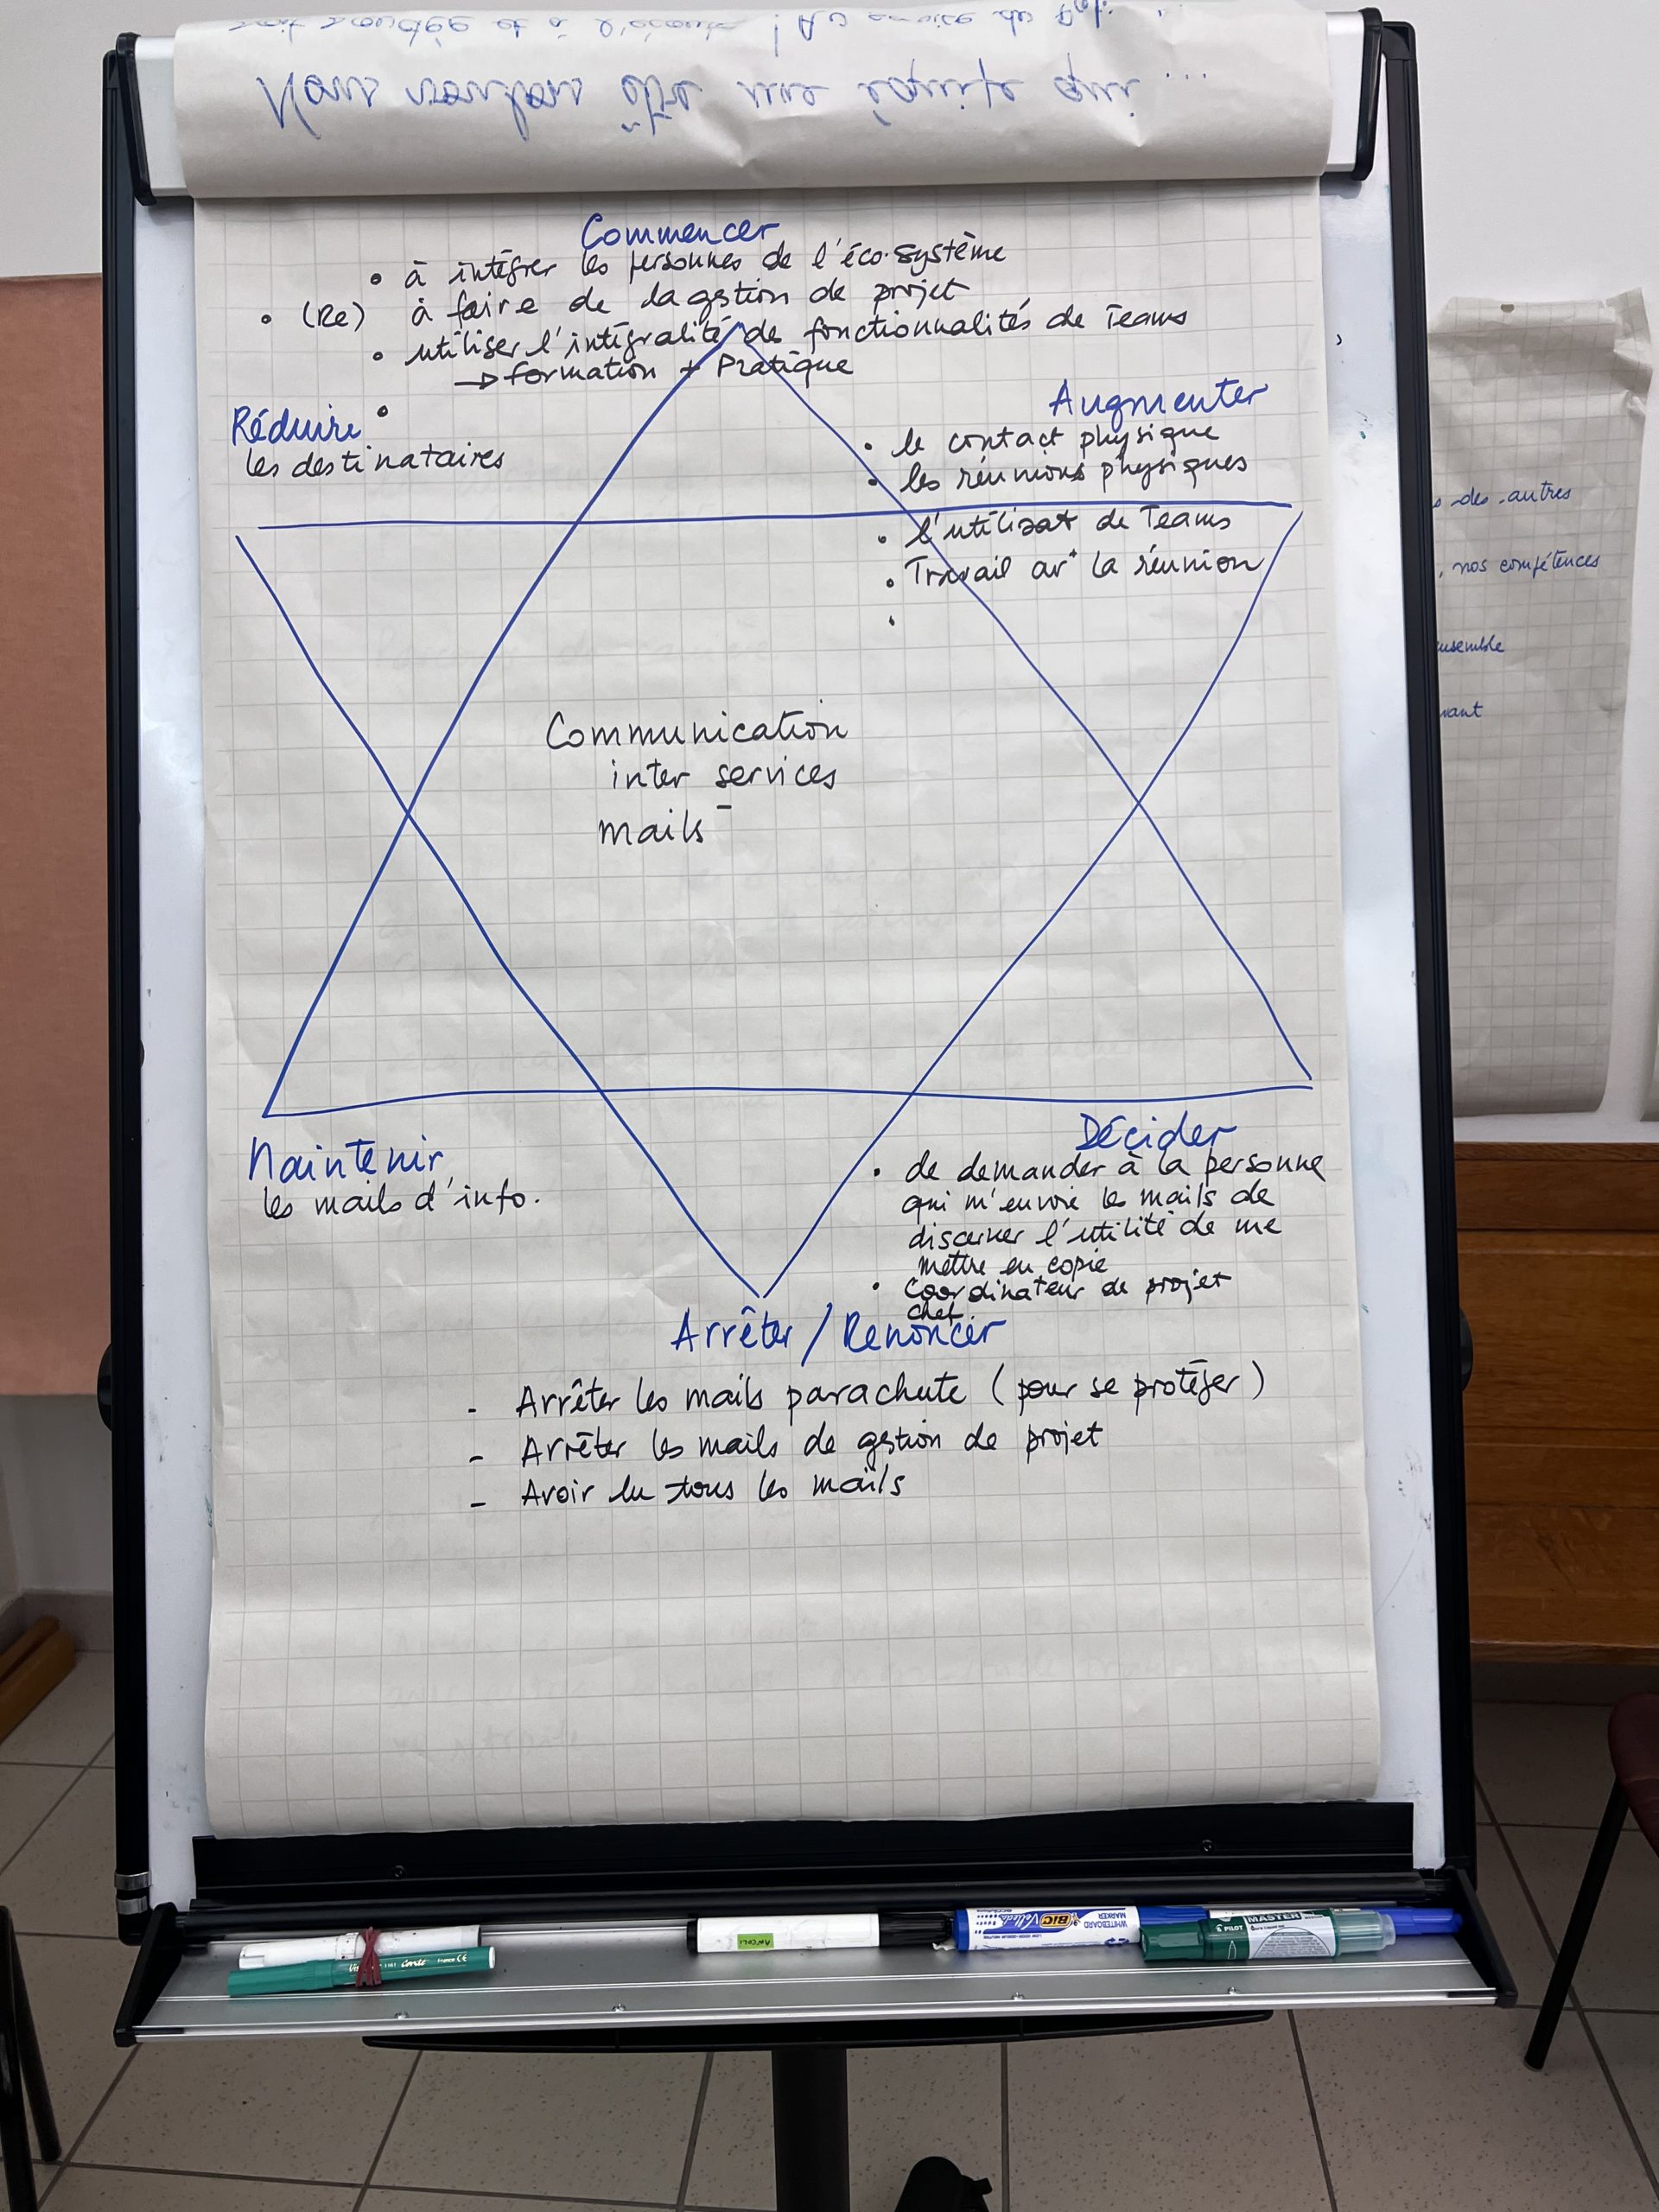 Nous voulons être une équipe qui...
Commencer
• à intégrer les personnes de l'éco-système
• (Re) à faire de la gestion de projet
• utiliser l'intégralité de fonctionnalités de Teams
→ formation + Pratique
•
Réduire
les destinataires
Augmenter
• le contact physique
• les réunions physiques
• l'utilisat de Teams
• Travail avt la réunion
•
Communication
inter services
mails
Maintenir
les mails d'info.
Décider
• de demander à la personne
qui m'envoie les mails de
discerner l'utilité de me
mettre en copie
• Coordinateur de projet
chef
Arrêter / Renoncer
- Arrêter les mails parachute (pour se protéger)
- Arrêter les mails de gestion de projet
- Avoir lu tous les mails
des autres
, nos compétences
ensemble
BIC Velleda
WHITEBOARD
MARKER
PILOT
MASTER
Conté